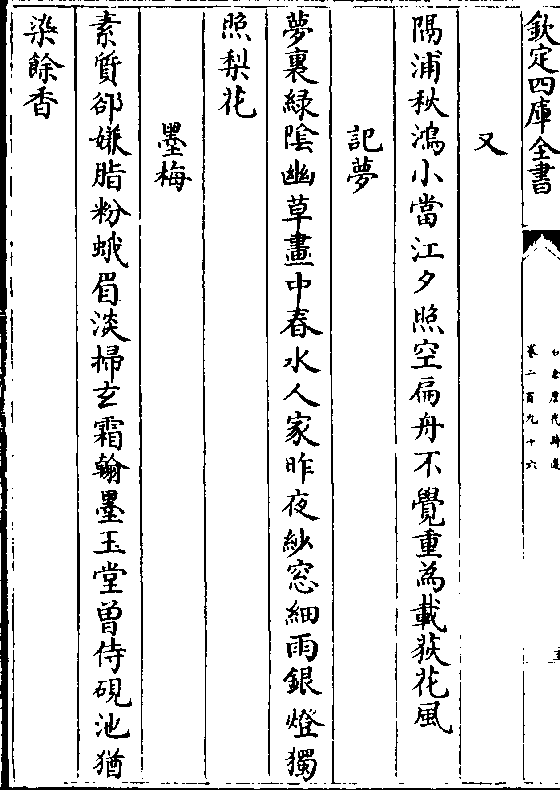 欽定四庫全書
卷二百九十六
又
隔浦秋鴻小當江夕照空扁舟不覺重為載荻花風
記夢
夢裏綠陰幽草畫中春水人家昨夜紗窓細雨銀燈獨
照梨花
墨梅
素質却嫌脂粉蛾眉淡掃玄霜翰墨玉堂曽侍硯池猶
染餘香